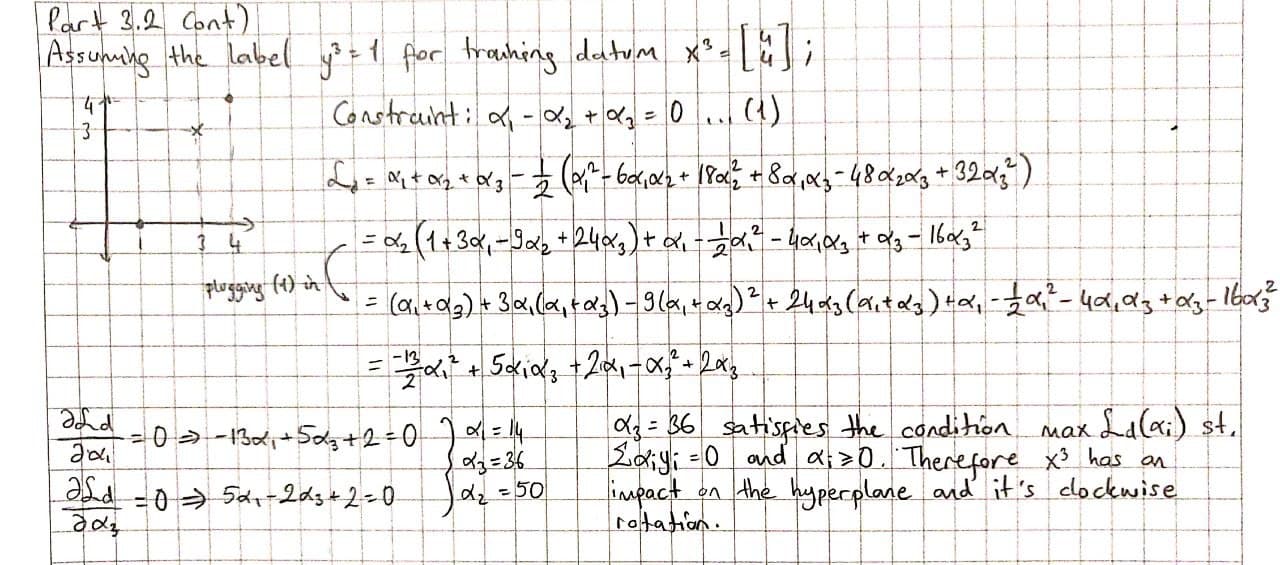 Part 3.2 Cont)
Assuming the label y³ = 1 for training datum x³ = [4 4];
Constraint: α₁ - α₂ + α₃ = 0 ... (1)
4
3
x
3 4
1
L_d = α₁ + α₂ + α₃ - 1/2 (α₁² - 6α₁α₂ + 18α₂² + 8α₁α₃ - 48α₂α₃ + 32α₃²)
= α₂(1 + 3α₁ - 9α₂ + 24α₃) + α₁ - 1/2 α₁² - 4α₁α₃ + α₃ - 16α₃²
plugging (1) in
= (α₁+α₃) + 3α₁(α₁+α₃) - 9(α₁+α₃)² + 24α₃(α₁+α₃) + α₁ - 1/2 α₁² - 4α₁α₃ + α₃ - 16α₃²
= -13/2 α₁² + 5α₁α₃ + 2α₁ - α₃² + 2α₃
∂L_d/∂α₁ = 0 ⇒ -13α₁ + 5α₃ + 2 = 0
∂L_d/∂α₃ = 0 ⇒ 5α₁ - 2α₃ + 2 = 0
} α₁ = 14
α₃ = 36
α₂ = 50
α₃ = 36 satisfies the condition max L_d(αᵢ) st.
Σαᵢyᵢ = 0 and αᵢ ≥ 0. Therefore x³ has an
impact on the hyperplane and it's clockwise
rotation.